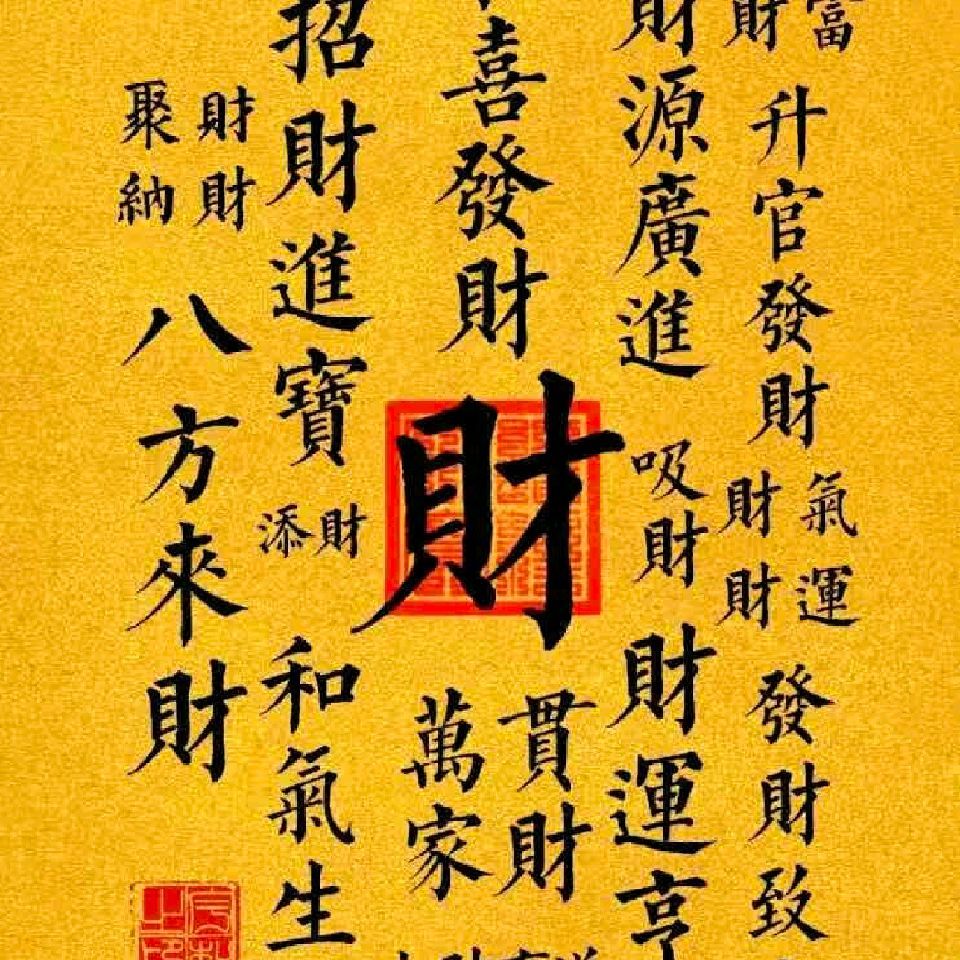 富
財
升官發財
氣運
財財
發財致
財源廣進
吸財
財運亨
喜發財
財
貫財
萬家
招財進寶
財
添
和氣生
財財
聚納
八方來財